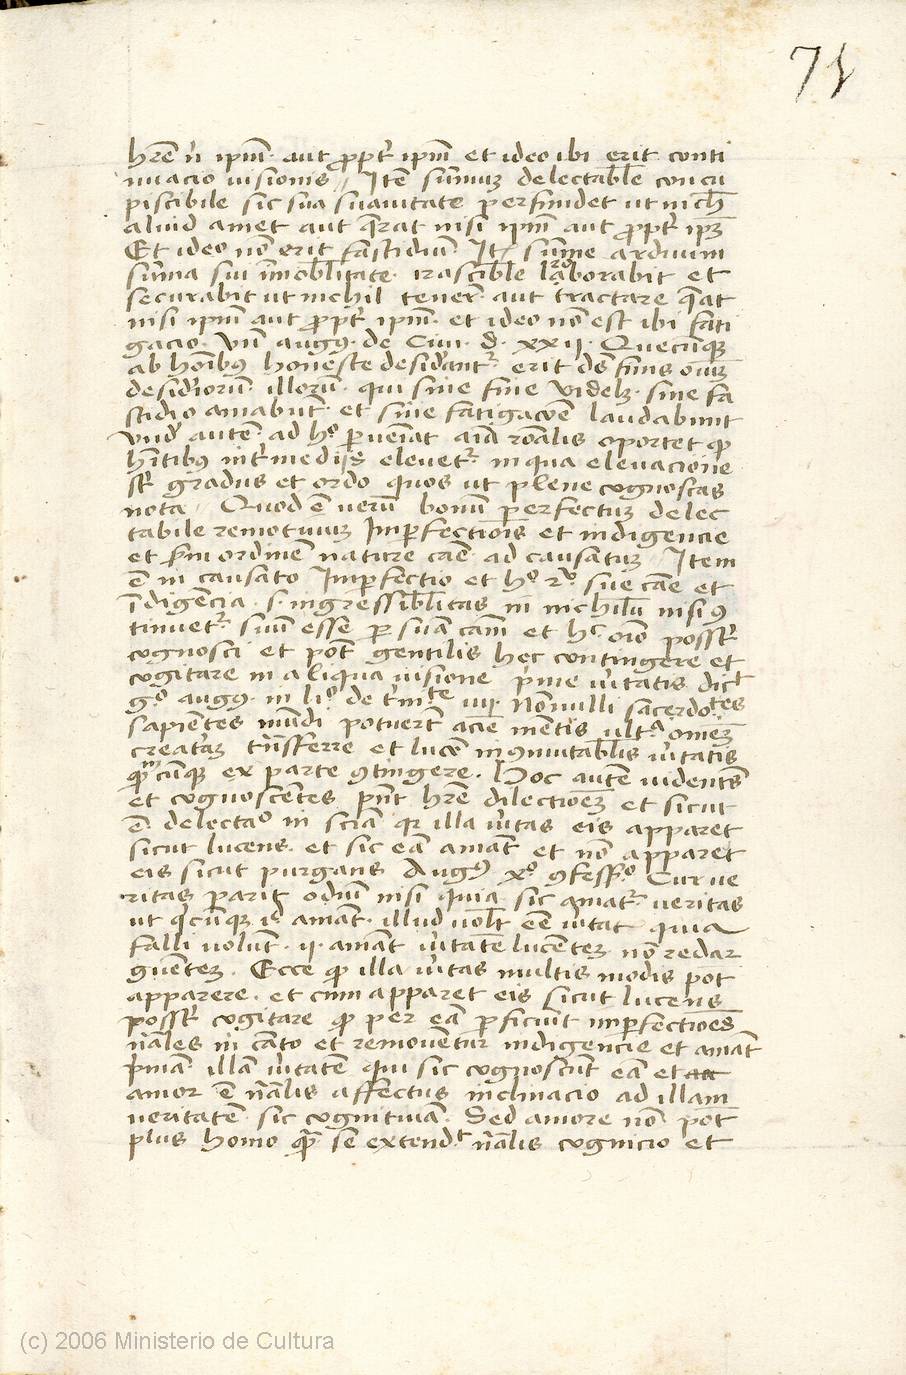 71
hr̄e n̄ ip̄m aut ꝓpt̄ ip̄m et ideo ibi erit conti
nuacio visionis // Itē sum̄uʒ delectabl̄e concu
piscibile sic sua suauitate perfundet ut nich̄
aliud amet aut q̄rat nisi ip̄m aut ꝓpt̄ ip̄ʒ
Et ideo nō erit fastidiū Itʒ sum̄e arduum
sum̄a sui im̄obl̄itate irascibl̄e laborabit et
securabit ut nichil tener̄ aut tractare q̄rat
nisi ip̄m aut ꝓpt̄ ip̄m et ideo nō est ibi fati
gacio. Vn̄ augꝰ de Ciui. d. xxij. Quecūqʒ
ab hoībꝰ honeste desid̄ant̄ erit ds̄ finis oīuʒ
desid̄ioruʒ illorū qui sine fine videbʒ sine fa
stidio amabit̄ et sine fatigac̄oē laudabitur
autē ad hº ꝑueīat aīa rōalis oportet qꝫ
hītibꝰ int̄medijs eleuet̄ in qua eleuacione
st̄ gradus et ordo quos ut plene cognoscas
nota // Quod ē verū bonū perfectum delec
tabile remotiuuʒ Imꝑfectiōis et indigencie
et ordinē nature cāē ad causatuʒ Item
ē in causato Imperfectio et hº rº siue cāe et
īdigēcia .s. ingressibl̄itas in nichilū nisi ꝯ
tinuet̄ suū esse ꝑ suā cām et hº oīo posst̄
cognosci et pot̄ gentilis hec contingere et
cogitare in aliqua visione p̄me v̄itatis dict̄
gº augꝰ in liº de t̄nite iiij. Nōnulli sacerdotes
sapientes mūdi potuert̄ aciē mētis ult̄ omēʒ
creat̄aʒ t̄nsferre et lucē inꝯmutabl̄is v̄itatis
cūqʒ ex parte ꝯtingere. Hoc autē videntes
et cognoscētes pn̄t hr̄e dilectioēʒ et sicut
ē delectaº in sciā qʳ illa v̄itas eis apparet
sicut lucens et sic eā amāt et nō apparet
eis sicut purgans Augꝰ xº ꝯfessº Cur ve
ritas parit odiū nisi quia sic amat̄ veritas
ut qͥcūqʒ amāt illud volt̄ eē v̄itat̄ quia
falli nolūt ij. amāt v̄itatē lucēteʒ nō redar
guēteʒ. Ecce qꝫ illa v̄itas multis modis pot
apparere. et cum apparet eis sicut lucens
posst̄ cogitare qꝫ per eā ꝑficiūt imꝑfectiōes
n̄ales in cāto et remouētur indigencie et amāt
p̄mā illā v̄itatē qui sic cognoscūt eā et
amor ē n̄alis affectus inclinacio ad illam
veritatē sic cognituā. Sed amore nō pot
plus homo qꝫ sē extendᵗ n̄alis cognicio et
(c) 2006 Ministerio de Cultura